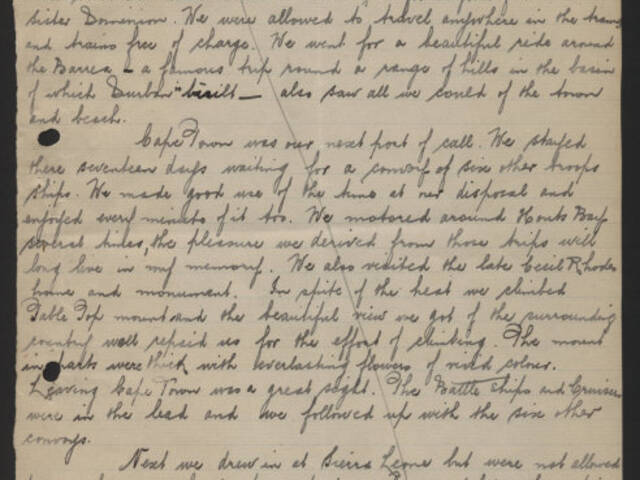 sister Dominion. We were allowed to travel anywhere in the trams
and trains free of charge. We went for a beautiful ride around
the Barrea - a famous trip round a range of hills in the basin
of which Durban "is built - also saw all we could of the town
and beach.
Cape Town was our next port of call. We stayed
there seventeen days waiting for a convoy of six other troops
ships. We made good use of the time at our disposal and
enjoyed every minute of it too. We motored around Houts Bay
several times, the pleasure we derived from those trips will
long live in my memory. We also visited the late Cecil Rhodes
home and monument. In spite of the heat we climbed
Table Top mount and the beautiful view we got of the surrounding
country well repaid us for the effort of climbing. The mount
in parts were thick with everlasting flowers of vivid colour.
Leaving Cape Town was a great sight. The Battle ships and Cruisers
were in the lead and we followed up with the six other
convoys.
Next we drew in at Sierra Leone but were not allowed